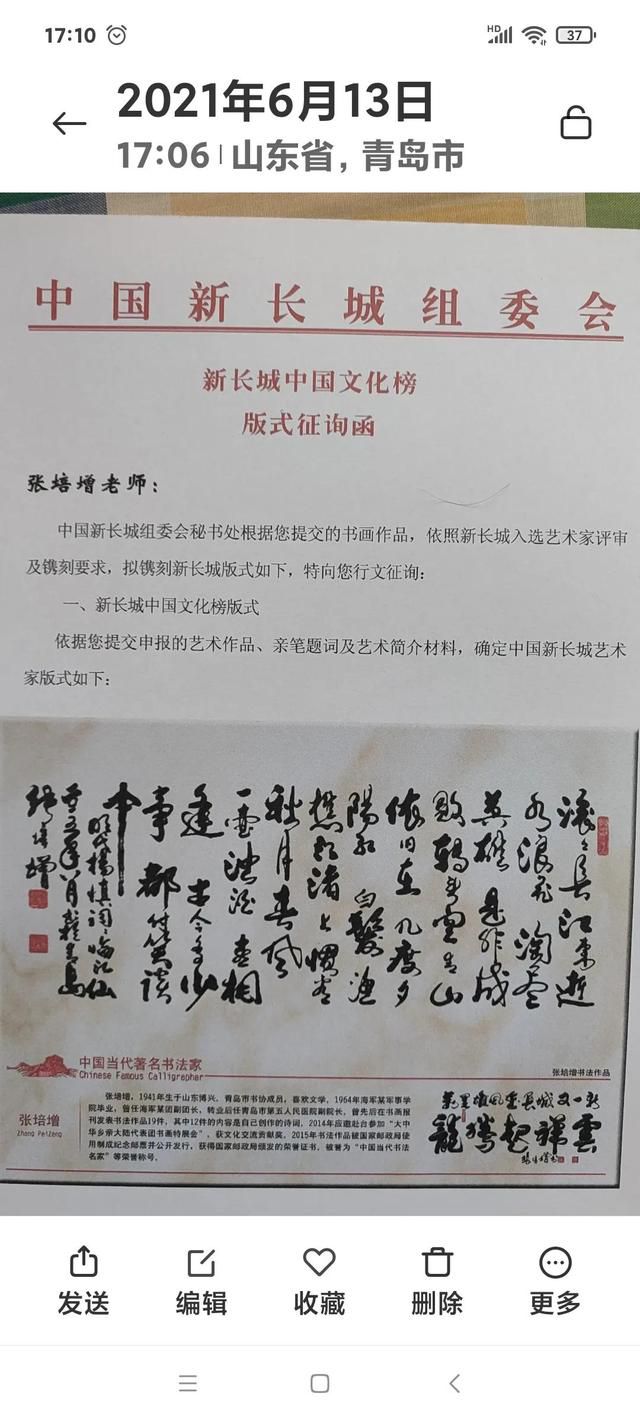 17:10
HD
37
2021年6月13日
17:06 | 山东省，青岛市
中国新长城组委会
新长城中国文化榜
版式征询函
张培增老师：
中国新长城组委会秘书处根据您提交的书画作品，依照新长城入选艺术家评审
及镌刻要求，拟镌刻新长城版式如下，特向您行文征询：
一、新长城中国文化榜版式
依据您提交申报的艺术作品、亲笔题词及艺术简介材料，确定中国新长城艺术
家版式如下：
滚滚长江东逝
水浪花淘尽
英雄是非成
败转头空青山
依旧在几度夕
阳红白发渔
樵江渚上惯看
秋月春风
一壶浊酒喜相
逢古今多少
事都付笑谈
中
明代杨慎词临江仙
八月于青岛
张培增
中国当代著名书法家
Chinese Famous Calligrapher
张培增书法作品
张培增
Zhang PeiZeng
张培增，1941年生于山东博兴，青岛市书协成员，喜欢文学，1964年海军某军事学
院毕业，曾任海军某团副团长，转业后任青岛市第五人民医院副院长，曾先后在书画报
刊发表书法作品19件，其中12件的内容是自己创作的诗词，2014年应邀赴台参加“大中
华乡亲大陆代表团书画特展会”，获文化交流贡献奖。2015年书法作品被国家邮政局使
用制成纪念邮票并公开发行，获得国家邮政局颁发的荣誉证书，被誉为“中国当代书法
名家”等荣誉称号。
龍騰起祥雲
发送
编辑
收藏
删除
更多